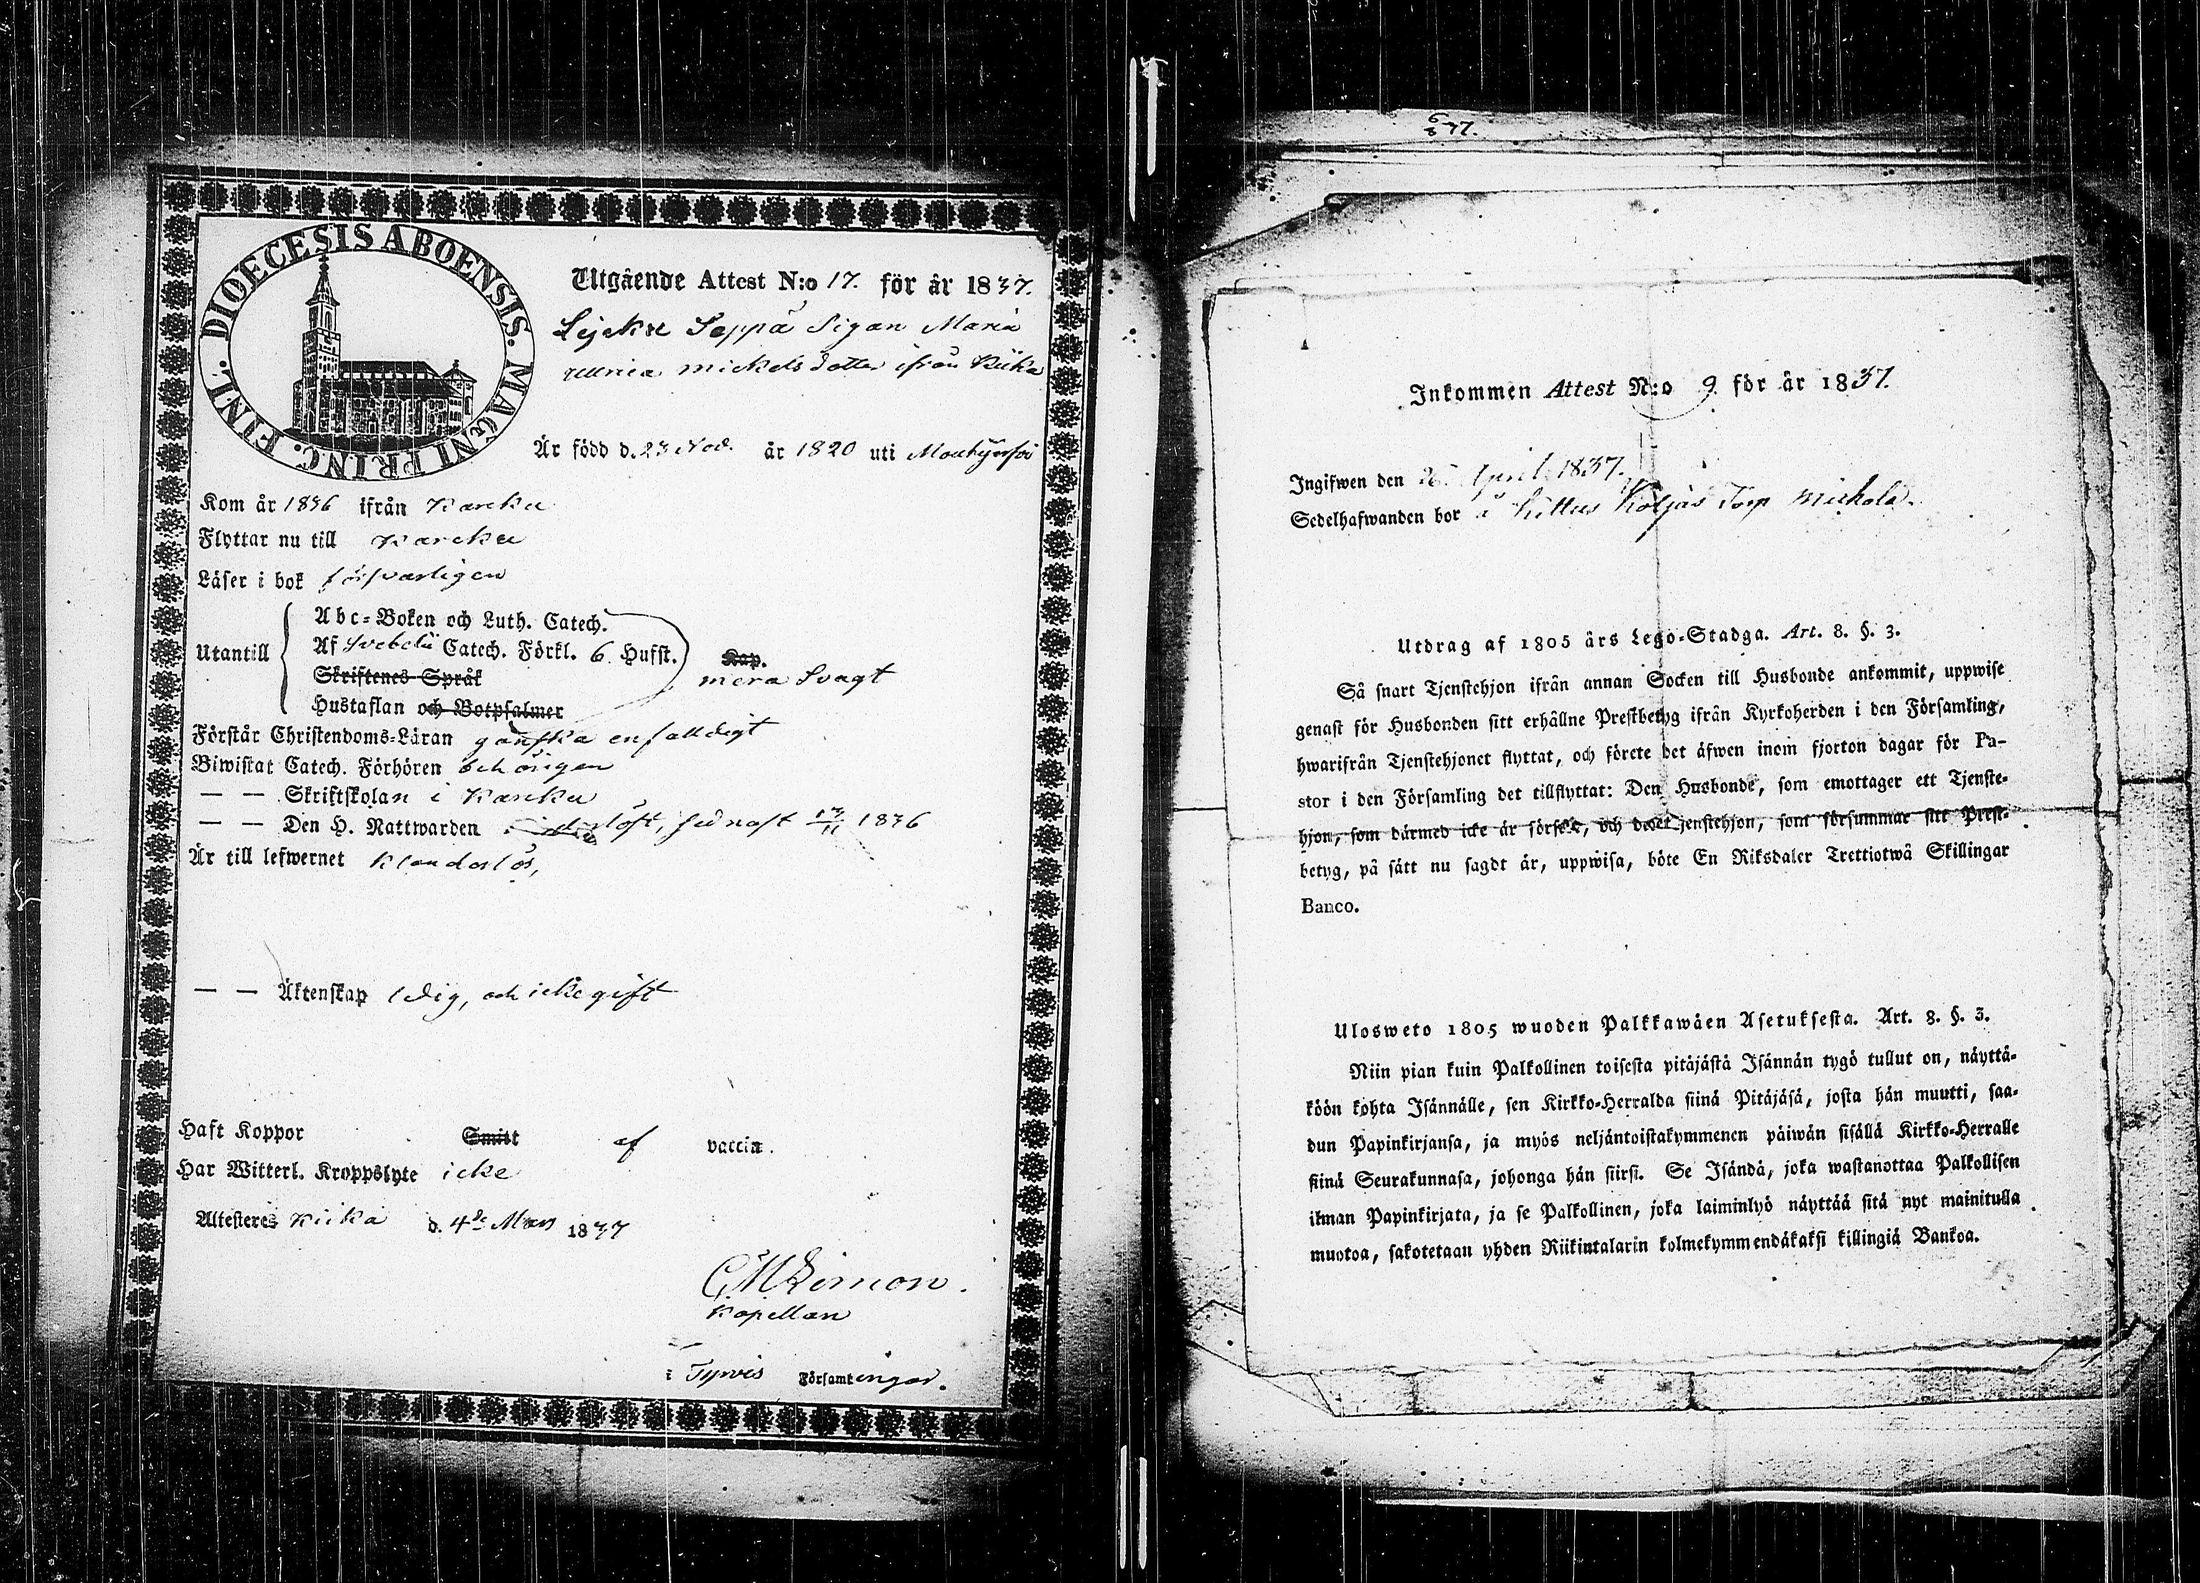 DIOECESIS ABOENSIS. MAGNI PRINC. FINL.
Utgående Attest N:o 17. för år 1837.
Seppä Pigan Maria
mickels dotter ifrån Kiika
Är född d. 23 Nov. år 1820 uti Mouhijerfvi
Kom år 1836 ifrån Karcku
Flyttar nu till Karcku
Läser i bok försvarligen
Utantill
Abc-Boken och Luth. Catech.
Af Svebelii Catech. Förkl. 6 Hufst. Kap.
Skriftenes Språk mera Svagt
Hustaflan och Botpsalmer
Förstår Christendoms-Läran ganska enfalldigt
Biwistat Catech. Förhören behörigen
— — Skriftskolan i Karcku
— — Den H. Nattwarden sednast 13/11 1836
Är till lefwernet Klanderlös,
— — Äktenskap ledig, och icke gift
Haft Koppor Smitt af vaccin.
Har Witterl. Kroppslyte icke
Attesteres Kiika d. 4de Mars 1837
C M Limon.
Kapellan
i Tyrvis Församlingar.
6/8 37.
Inkommen Attest N:o 9 för år 1837.
Ingifwen den 26 April 1837.
Sedelhafwanden bor å Kittus Torp Michola.
Utdrag af 1805 års Lego-Stadga. Art. 8. §. 3.
Så snart Tjenstehjon ifrån annan Socken till Husbonde ankommit, uppwise
genast för Husbonden sitt erhållne Prestbetyg ifrån Kyrkoherden i den Församling,
hwarifrån Tjenstehjonet flyttat, och förete det äfwen inom fjorton dagar för Pa-
stor i den Församling det tillflyttat: Den Husbonde, som emottager ett Tjenste-
hjon, som därmed icke är försedt, och det Tjenstehjon, som försummar sitt Prest-
betyg, på sätt nu sagdt är, uppwisa, böte En Riksdaler Trettiotwå Skillingar
Banco.
Ulosweto 1805 wuoden Palkkawäen Asetuksesta. Art. 8. §. 3.
Niin pian kuin Palkollinen toisesta pitäjästä Isännän tygö tullut on, näyttä-
köön kohta Isännälle, sen Kirkko-Herralda siinä Pitäjäsä, josta hän muutti, saa-
dun Papinkirjansa, ja myös neljäntoistakymmenen päiwän sisällä Kirkko-Herralle
siinä Seurakunnasa, johonga hän siirsi. Se Isändä, joka wastanottaa Palkollisen
ilman Papinkirjata, ja se Palkollinen, joka laiminlyö näyttää sitä nyt mainitulla
muotoa, sakotetaan yhden Riikintalarin kolmekymmendäkaksi killingiä Bankoa.